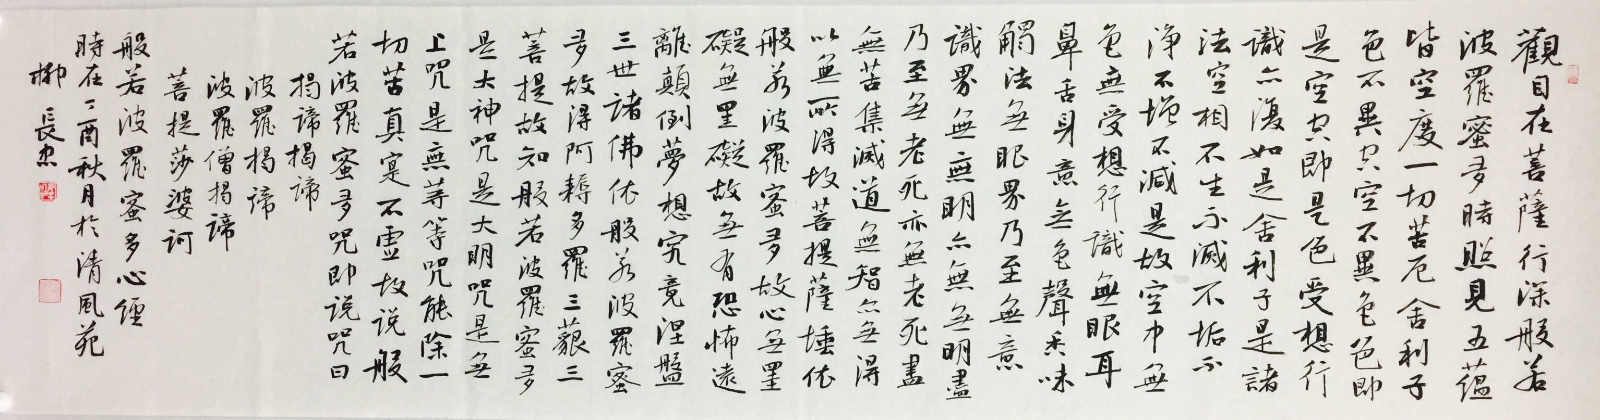 觀自在菩薩行深般若
波羅蜜多時照見五蘊
皆空度一切苦厄舍利子
色不異空空不異色色即
是空空即是色受想行
識亦復如是舍利子是諸
法空相不生不滅不垢不
淨不增不減是故空中無
色無受想行識無眼耳
鼻舌身意無色聲香味
觸法無眼界乃至無意
識界無無明亦無無明盡
乃至無老死亦無老死盡
無苦集滅道無智亦無得
以無所得故菩提薩埵依
般若波羅蜜多故心無罣
礙無罣礙故無有恐怖遠
離顛倒夢想究竟涅盤
三世諸佛依般若波羅蜜
多故得阿耨多羅三藐三
菩提故知般若波羅蜜多
是大神咒是大明咒是無
上咒是無等等咒能除一
切苦真實不虛故说般
若波羅蜜多咒即说咒曰
揭諦揭諦
波羅揭諦
波羅僧揭諦
菩提莎婆訶
般若波羅蜜多心經
時在丁酉秋月於清風苑
柳長忠